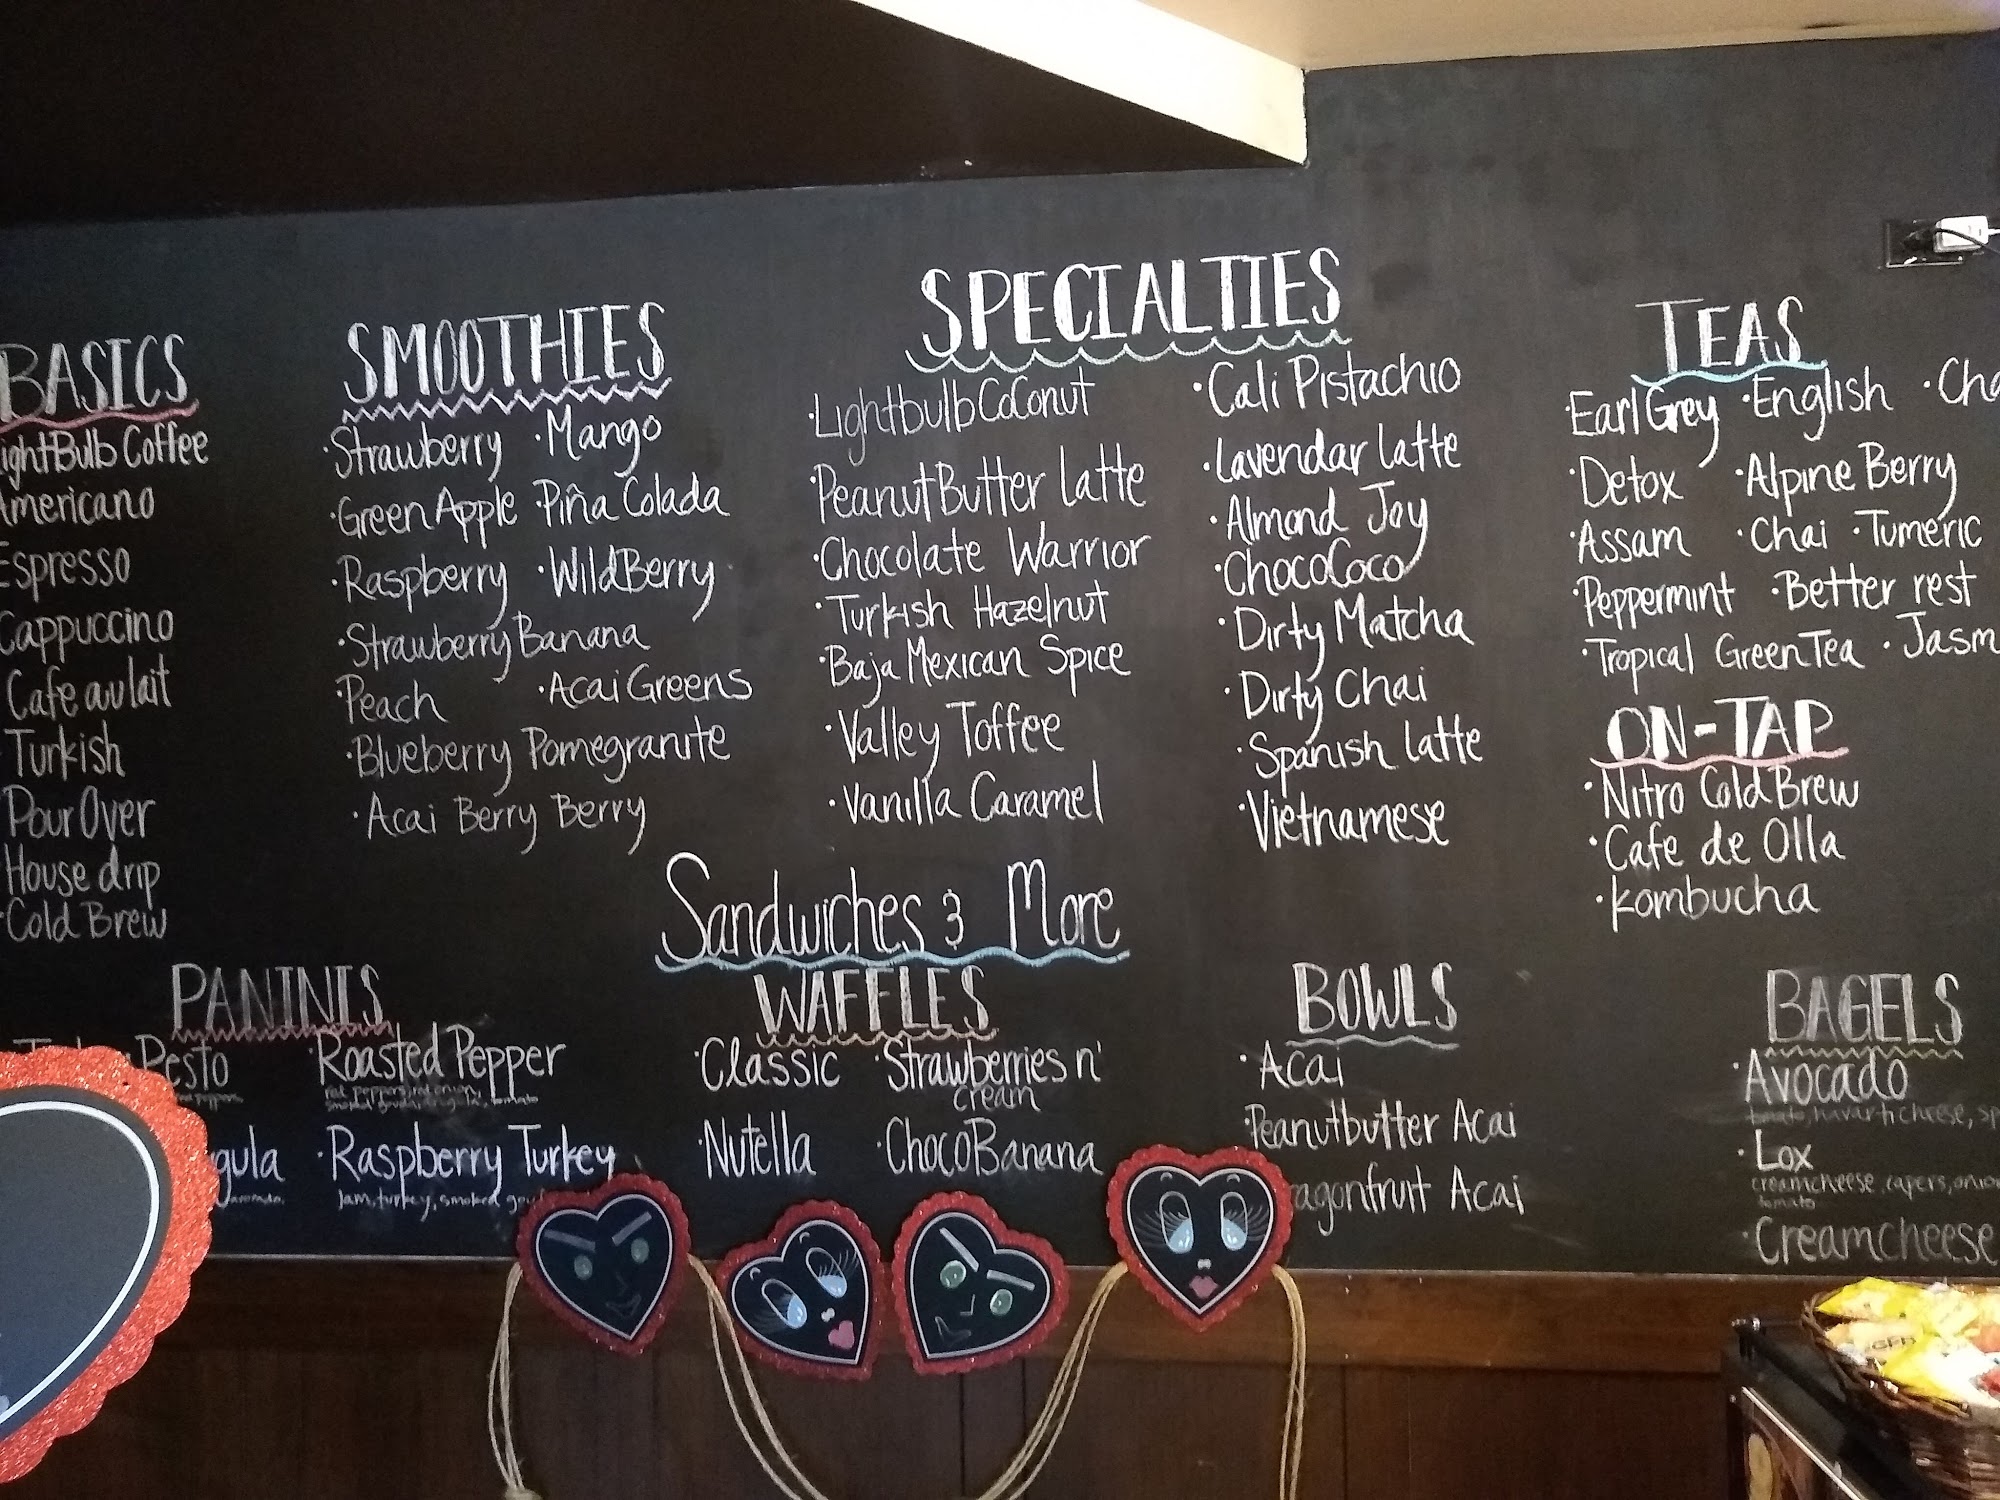 BASICS
ightBulb Coffee
Americano
Espresso
Cappuccino
Cafe au lait
Turkish
Pour Over
House drip
Cold Brew
SMOOTHIES
·Strawberry ·Mango
·Green Apple ·Piña Colada
·Raspberry ·WildBerry
·Strawberry Banana
·Peach ·Acai Greens
·Blueberry Pomegranite
·Acai Berry Berry
SPECIALTIES
·Lightbulb CoConut
·Peanut Butter Latte
·Chocolate Warrior
·Turkish Hazelnut
·Baja Mexican Spice
·Valley Toffee
·Vanilla Caramel
·Cali Pistachio
·Lavendar Latte
·Almond Joy
·ChocoCoco
·Dirty Matcha
·Dirty Chai
·Spanish Latte
·Vietnamese
TEAS
·Earl Grey ·English ·Cha
·Detox ·Alpine Berry
·Assam ·Chai ·Tumeric
·Peppermint ·Better rest
·Tropical Green Tea ·Jasm
ON-TAP
·Nitro Cold Brew
·Cafe de Olla
·Kombucha
Sandwiches & More
PANINIS
Pesto
gula
·Roasted Pepper
red peppers, red onion,
smoked gouda, arugula, tomato
·Raspberry Turkey
Jam, turkey, smoked gou
WAFFLES
·Classic ·Strawberries n'
cream
·Nutella ·ChocoBanana
BOWLS
·Acai
·Peanutbutter Acai
ragonfruit Acai
BAGELS
·Avocado
tomato, havarti cheese, sp
·Lox
creamcheese, capers, onion
tomato
·Creamcheese